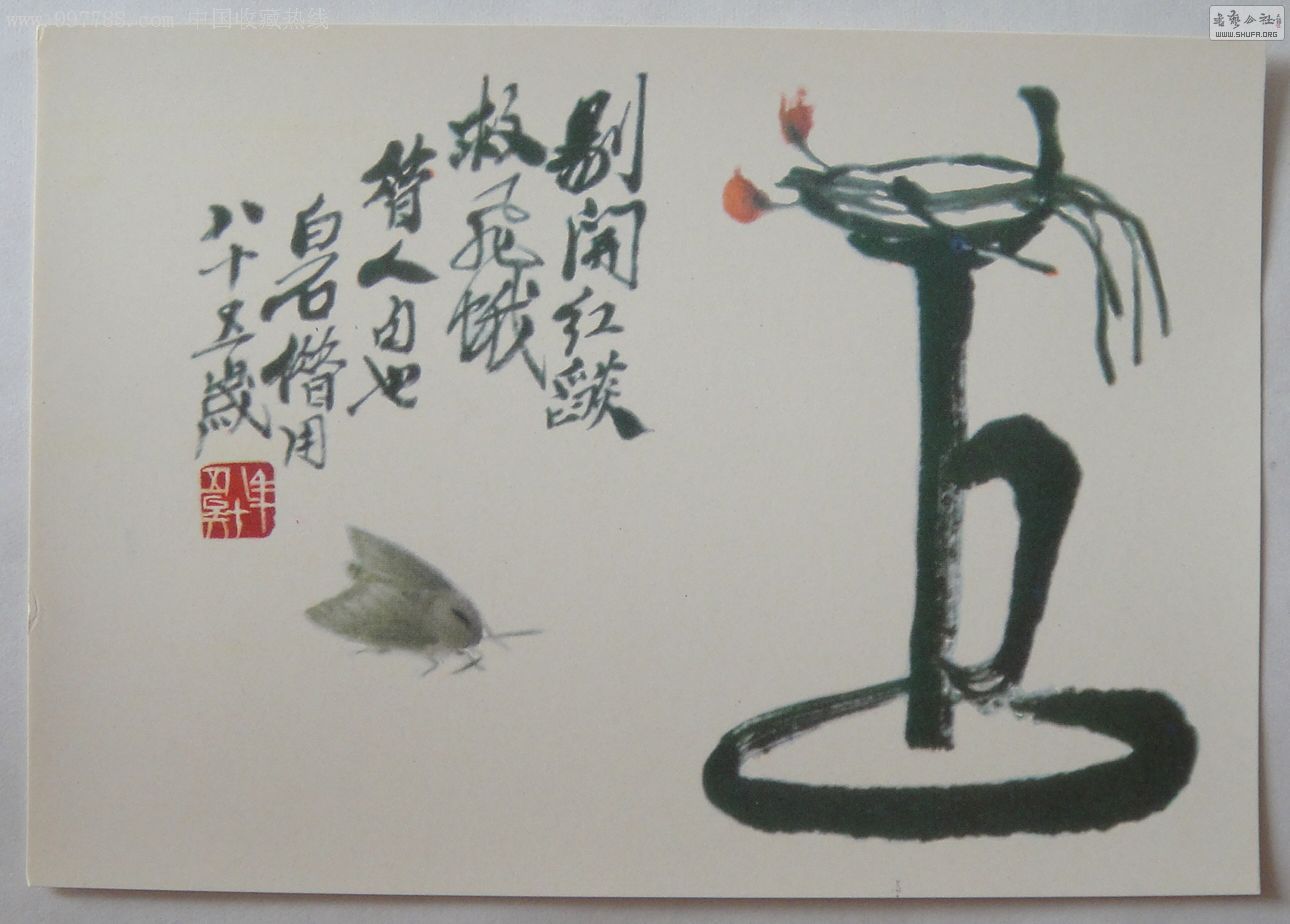 www.997788.com 中国收藏热线
書藝公社
WWW.SHUFA.ORG
剔開紅燄
救飛蛾
昔人句也
白石借用
八十五歲
年八十五矣